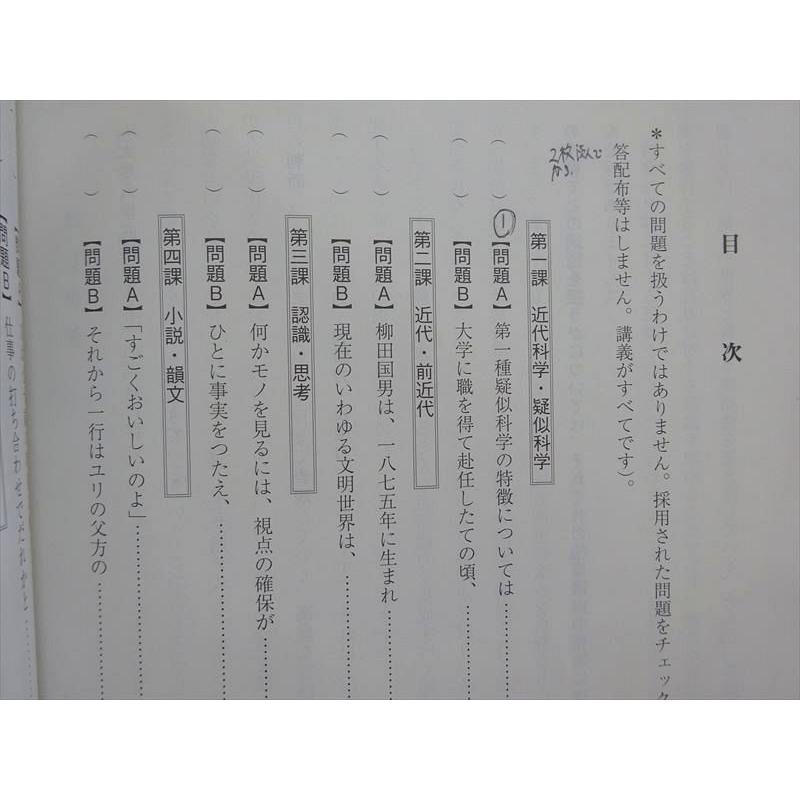 目次
*すべての問題を扱うわけではありません。採用された問題をチェック
答配布等はしません。講義がすべてです)。
2枚
第一課 近代科学・疑似科学
( ) ①【問題A】第一種疑似科学の特徴については…………
( ) 【問題B】大学に職を得て赴任したての頃、…………
第二課 近代・前近代
( ) 【問題A】柳田国男は、一八七五年に生まれ…………
( ) 【問題B】現在のいわゆる文明世界は、…………
第三課 認識・思考
( ) 【問題A】何かモノを見るには、視点の確保が…………
( ) 【問題B】ひとに事実をつたえ、…………
第四課 小説・韻文
( ) 【問題A】「すごくおいしいのよ」…………
( ) 【問題B】それから一行はユリの父方の…………
【問題B】仕事の打ち合わせでだれかと…………